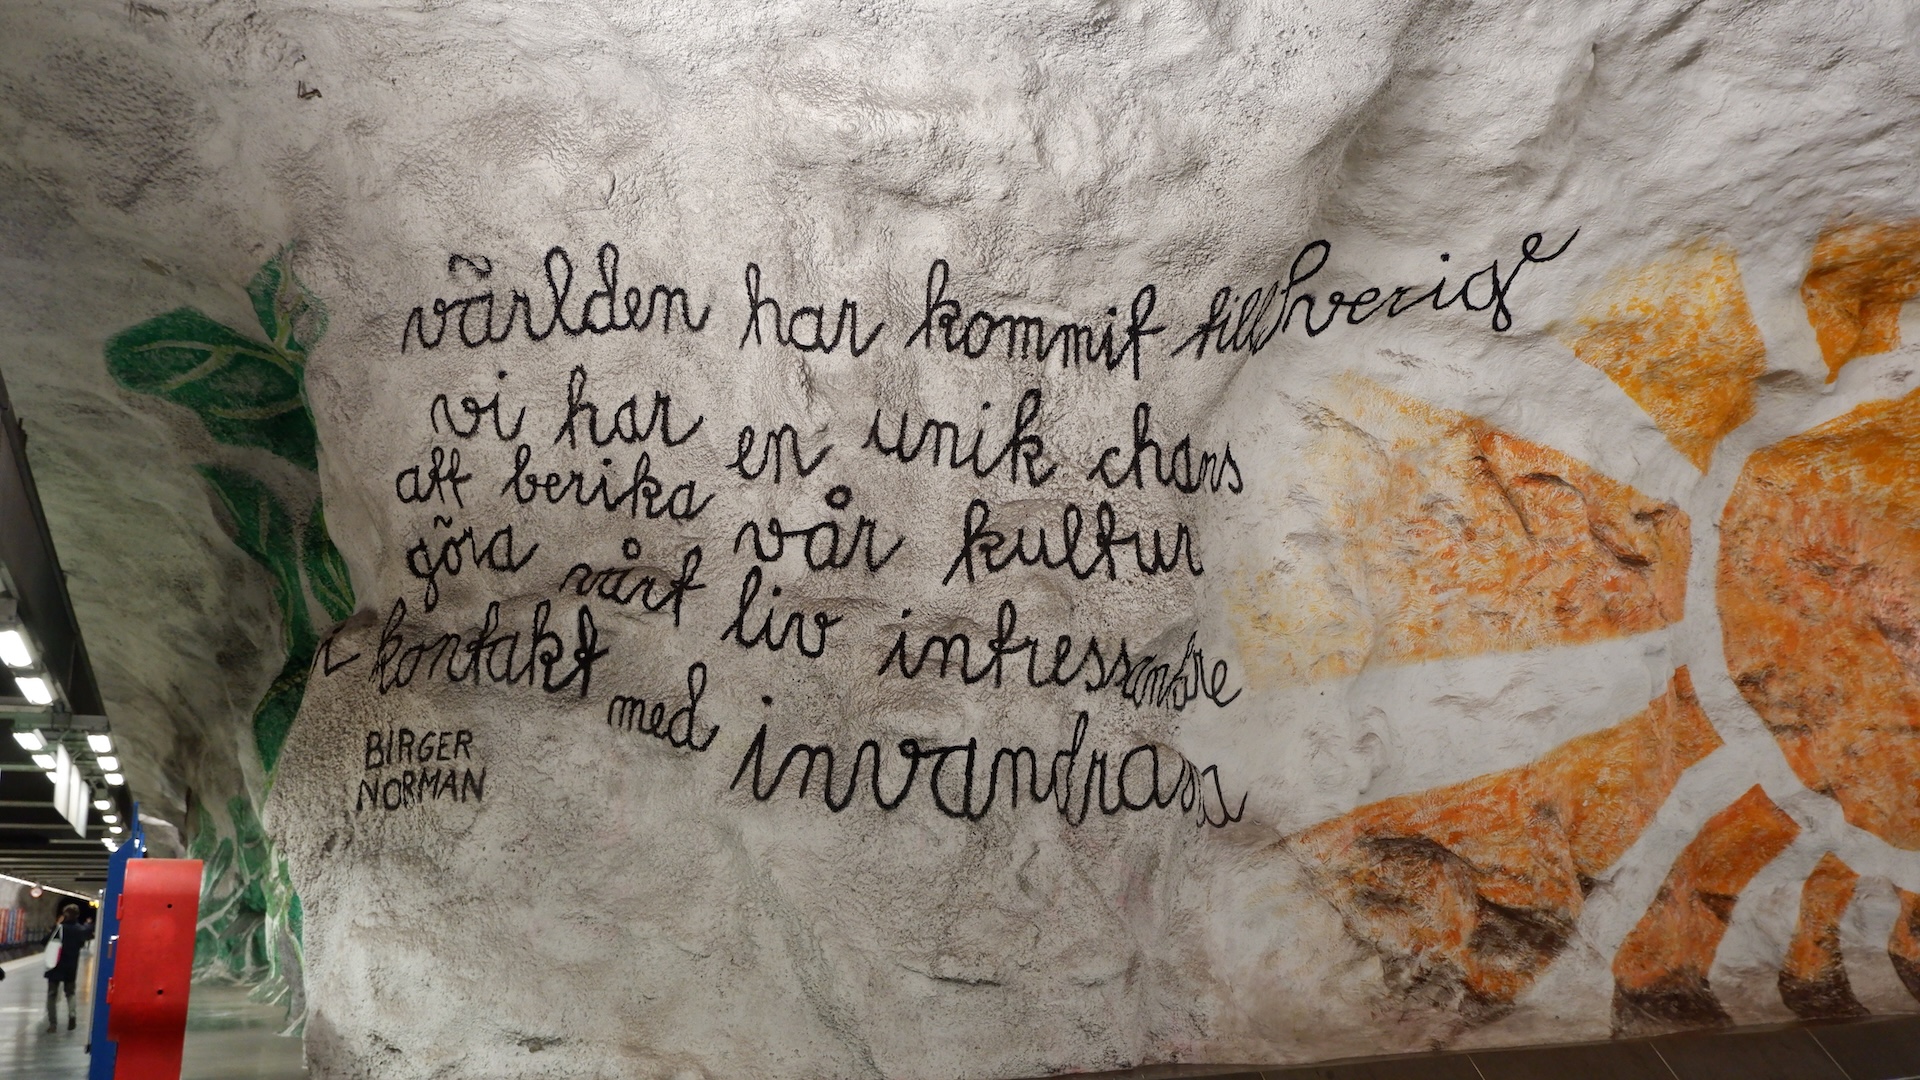 världen har kommit till sverige
vi har en unik chans
att berika vår kultur
göra vårt liv intressantare
i kontakt med invandrarna
BIRGER
NORMAN